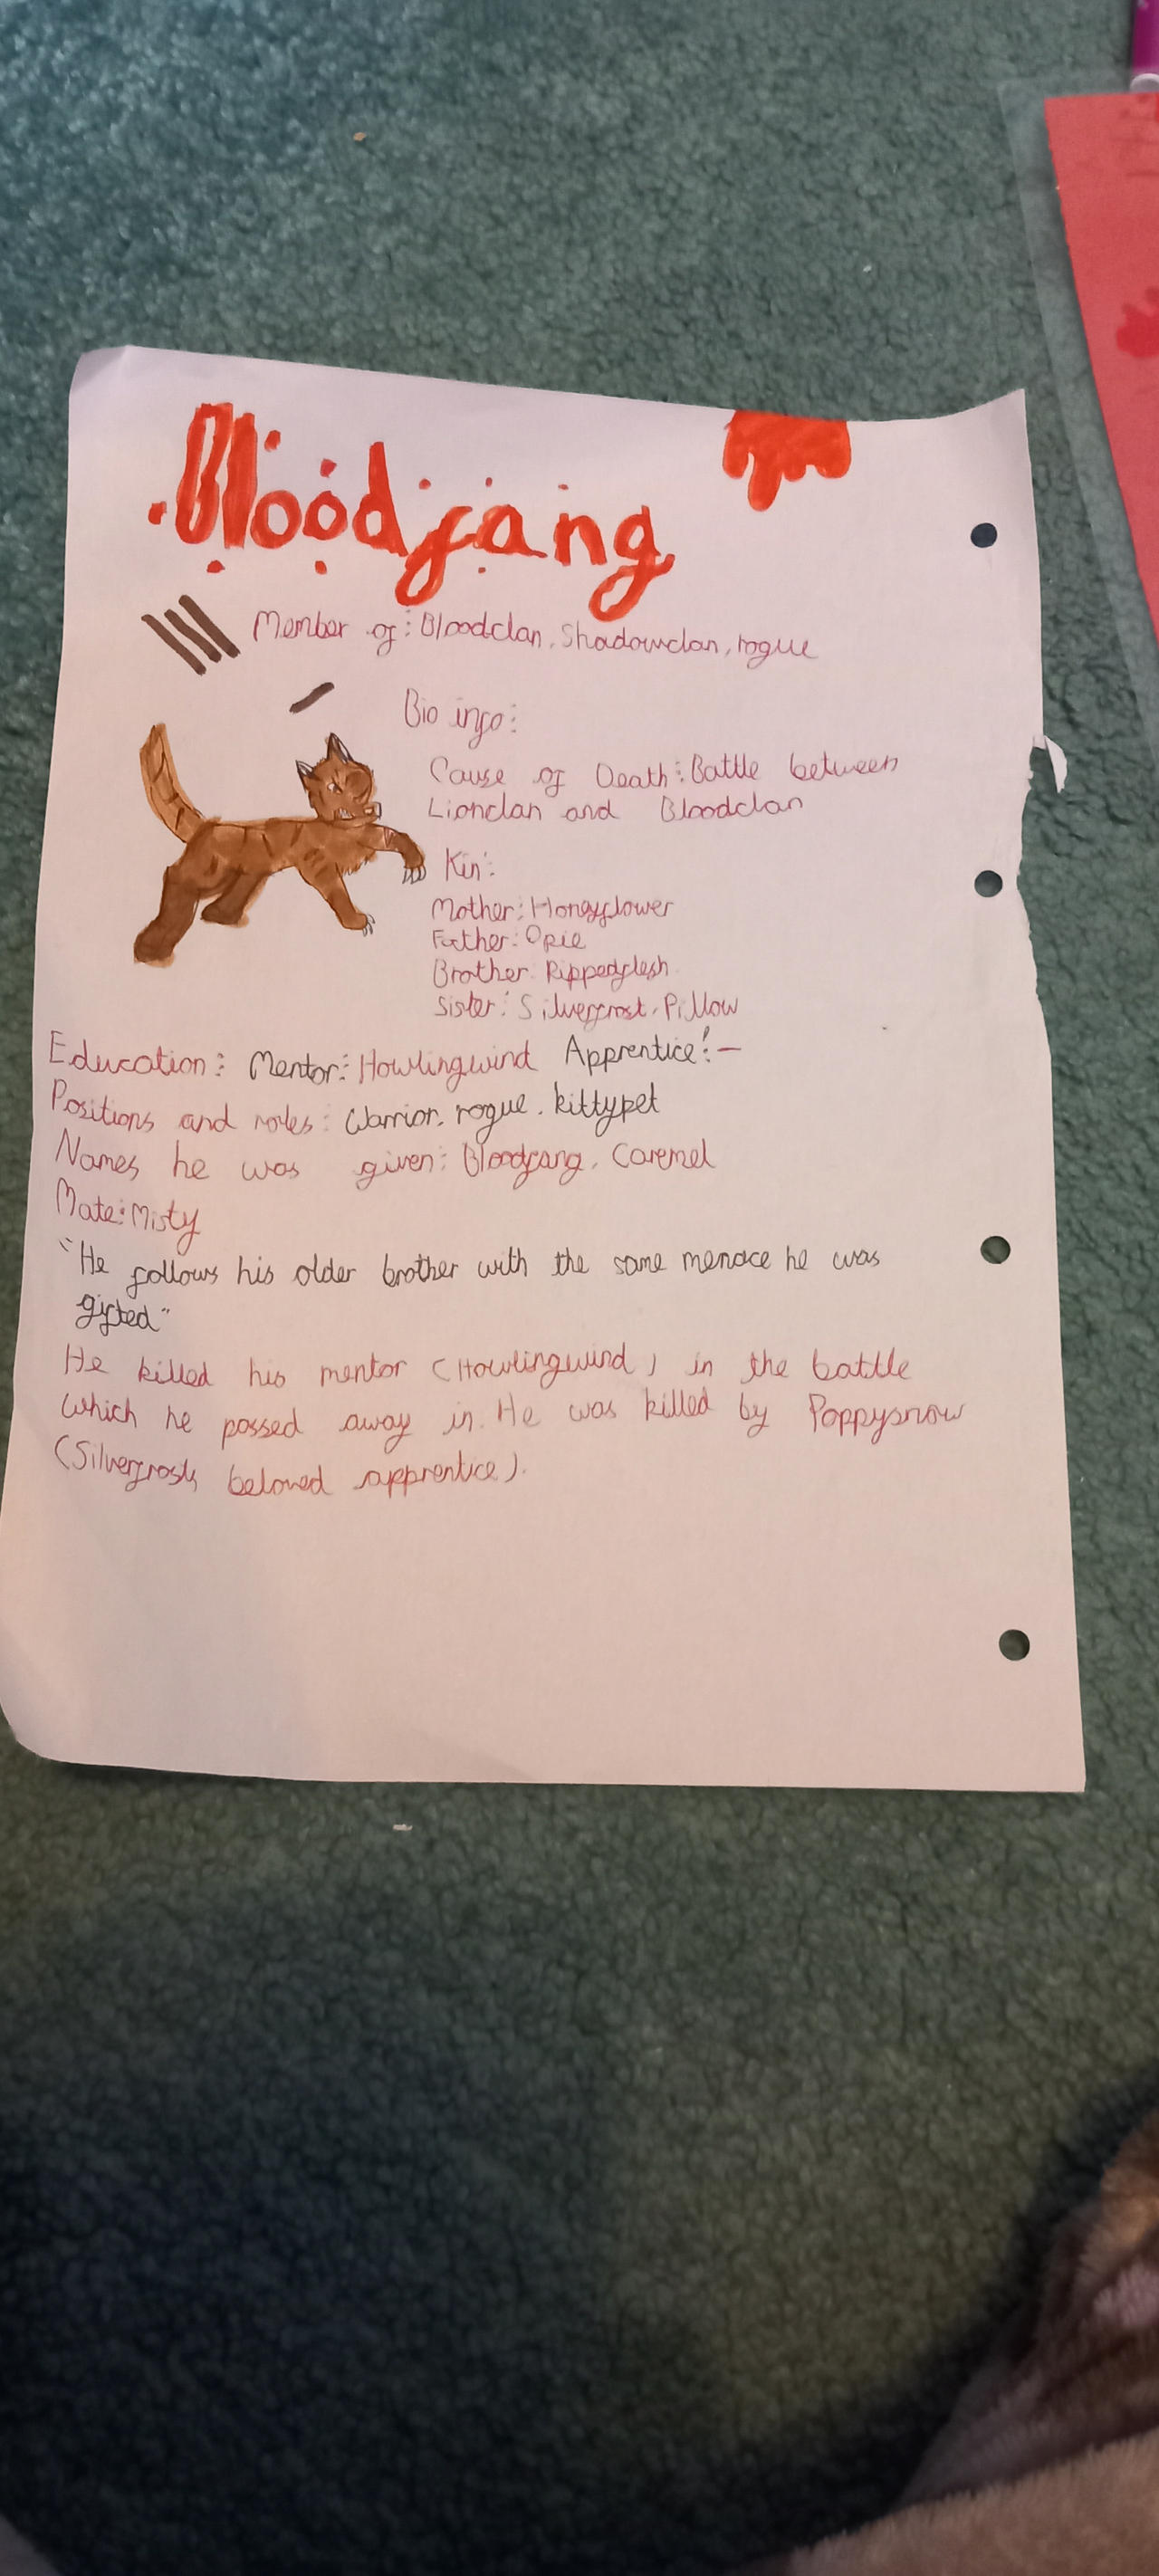 Bloodfang
Member of: Bloodclan, Shadowclan, rogue
Bio info:
Cause of Death: Battle between
Lionclan and Bloodclan
Kin:
Mother: Honeyflower
Father: Opie
Brother: Rippedflesh
Sister: Silverfrost, Pillow
Education: Mentor: Howlingwind Apprentice: -
Positions and roles: Warrior, rogue, kittypet
Names he was given: Bloodfang, Caremel
Mate: Misty
"He follows his older brother with the same menace he was
gifted"
He killed his mentor (Howlingwind) in the battle
which he passed away in. He was killed by Poppysnow
(Silverfrosts beloved apprentice).